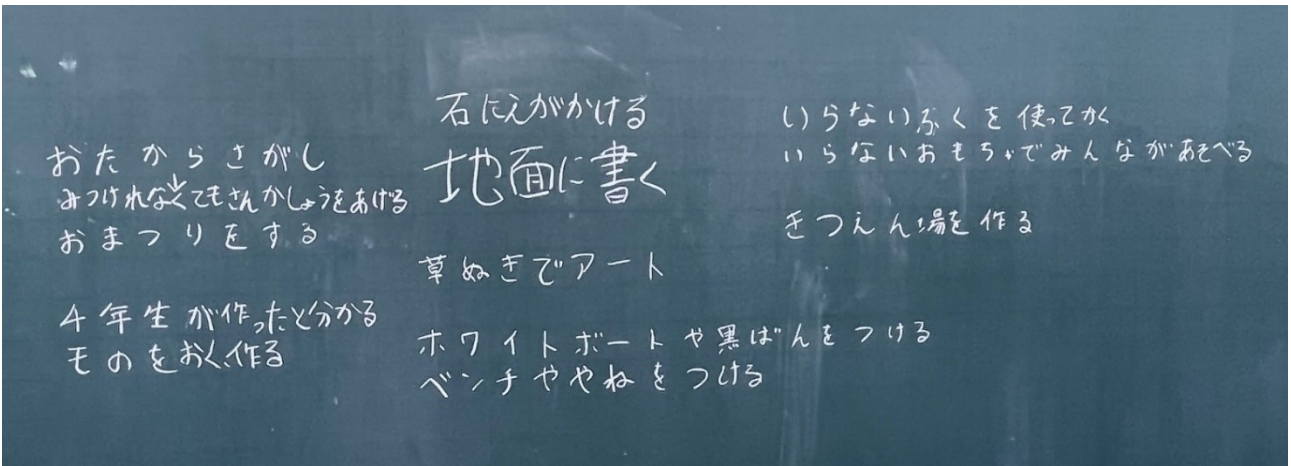 おたからさがし
みつけれなくてもさんかしょうをあげる
おまつりをする
4年生が作ったと分かる
ものをおく、作る
石にえがかける
地面に書く
草ぬきでアート
ホワイトボートや黒ばんをつける
ベンチややねをつける
いらないふくを使ってかく
いらないおもちゃでみんながあそべる
きつえん場を作る